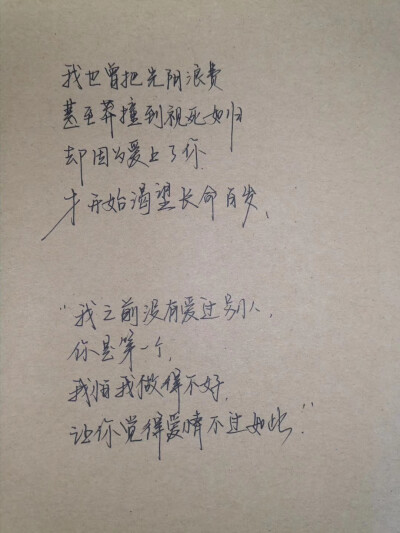 我也曾把光阴浪费
甚至莽撞到视死如归
却因为爱上了你
才开始渴望长命百岁、
“我之前没有爱过别人，
你是第一个，
我怕我做得不好，
让你觉得爱情不过如此。”